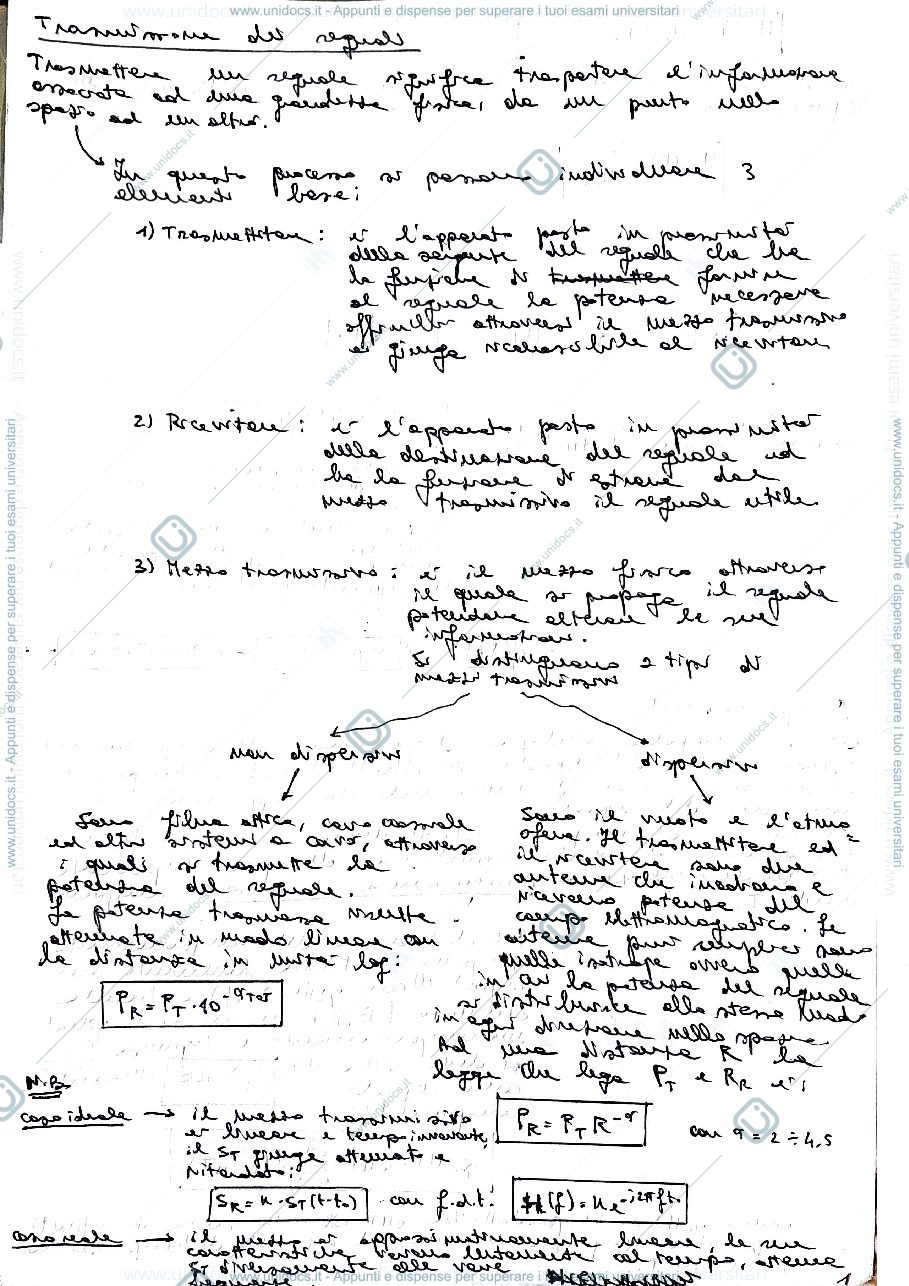 www.unidocs.it - Appunti e dispense per superare i tuoi esami universitari
Trasmissione dei segnali
Trasmettere un segnale significa trasportare l'informazione
associata ad una grandezza fisica, da un punto nello
spazio ad un altro.
In questo processo si possono individuare 3
elementi base:
1) Trasmettitore: è l'apparato posto in prossimità
della sorgente del segnale che ha
la funzione di trasmettere fornire
al segnale la potenza necessaria
affinché attraverso il mezzo trasmissivo
si giunga riconoscibile al ricevitore
2) Ricevitore: è l'apparato posto in prossimità
della destinazione del segnale ed
ha la funzione di estrarre dal
mezzo trasmissivo il segnale utile
3) Mezzo trasmissivo: è il mezzo fisico attraverso
il quale si propaga il segnale
potendone alterare le sue
informazioni.
Si distinguono 2 tipi di
mezzi trasmissivi
non dispersivi
dispersivi
Sono fibra ottica, cavo coassiale
ed altri sistemi a cavo, attraverso
i quali si trasmette la
potenza del segnale.
La potenza trasmessa risulta
attenuata in modo lineare con
la distanza in unità log:
Sono il vuoto e l'atmo
sfera. Il trasmettitore ed
il ricevitore sono due
antenne che irradiano e
ricevono potenza del
campo elettromagnetico. Le
antenne più semplici sono
quelle isotrope ovvero quelle
in cui la potenza del segnale
si distribuisce allo stesso modo
in ogni direzione nello spazio
Ad una distanza R la
legge che lega P_T e P_R è:
P_R = P_T R^-q
con q = 2 ÷ 4.5
N.B.
caso ideale → il mezzo trasmissivo
è lineare e tempo invariante,
il S_T giunge attenuato e
ritardato:
S_R = k · S_T(t-t₀) con f.d.t. H(f) = k e^-j2πft₀
caso reale → il mezzo è approssimativamente lineare, le sue
caratteristiche variano lentamente col tempo, attenua
si diversamente alle varie
1